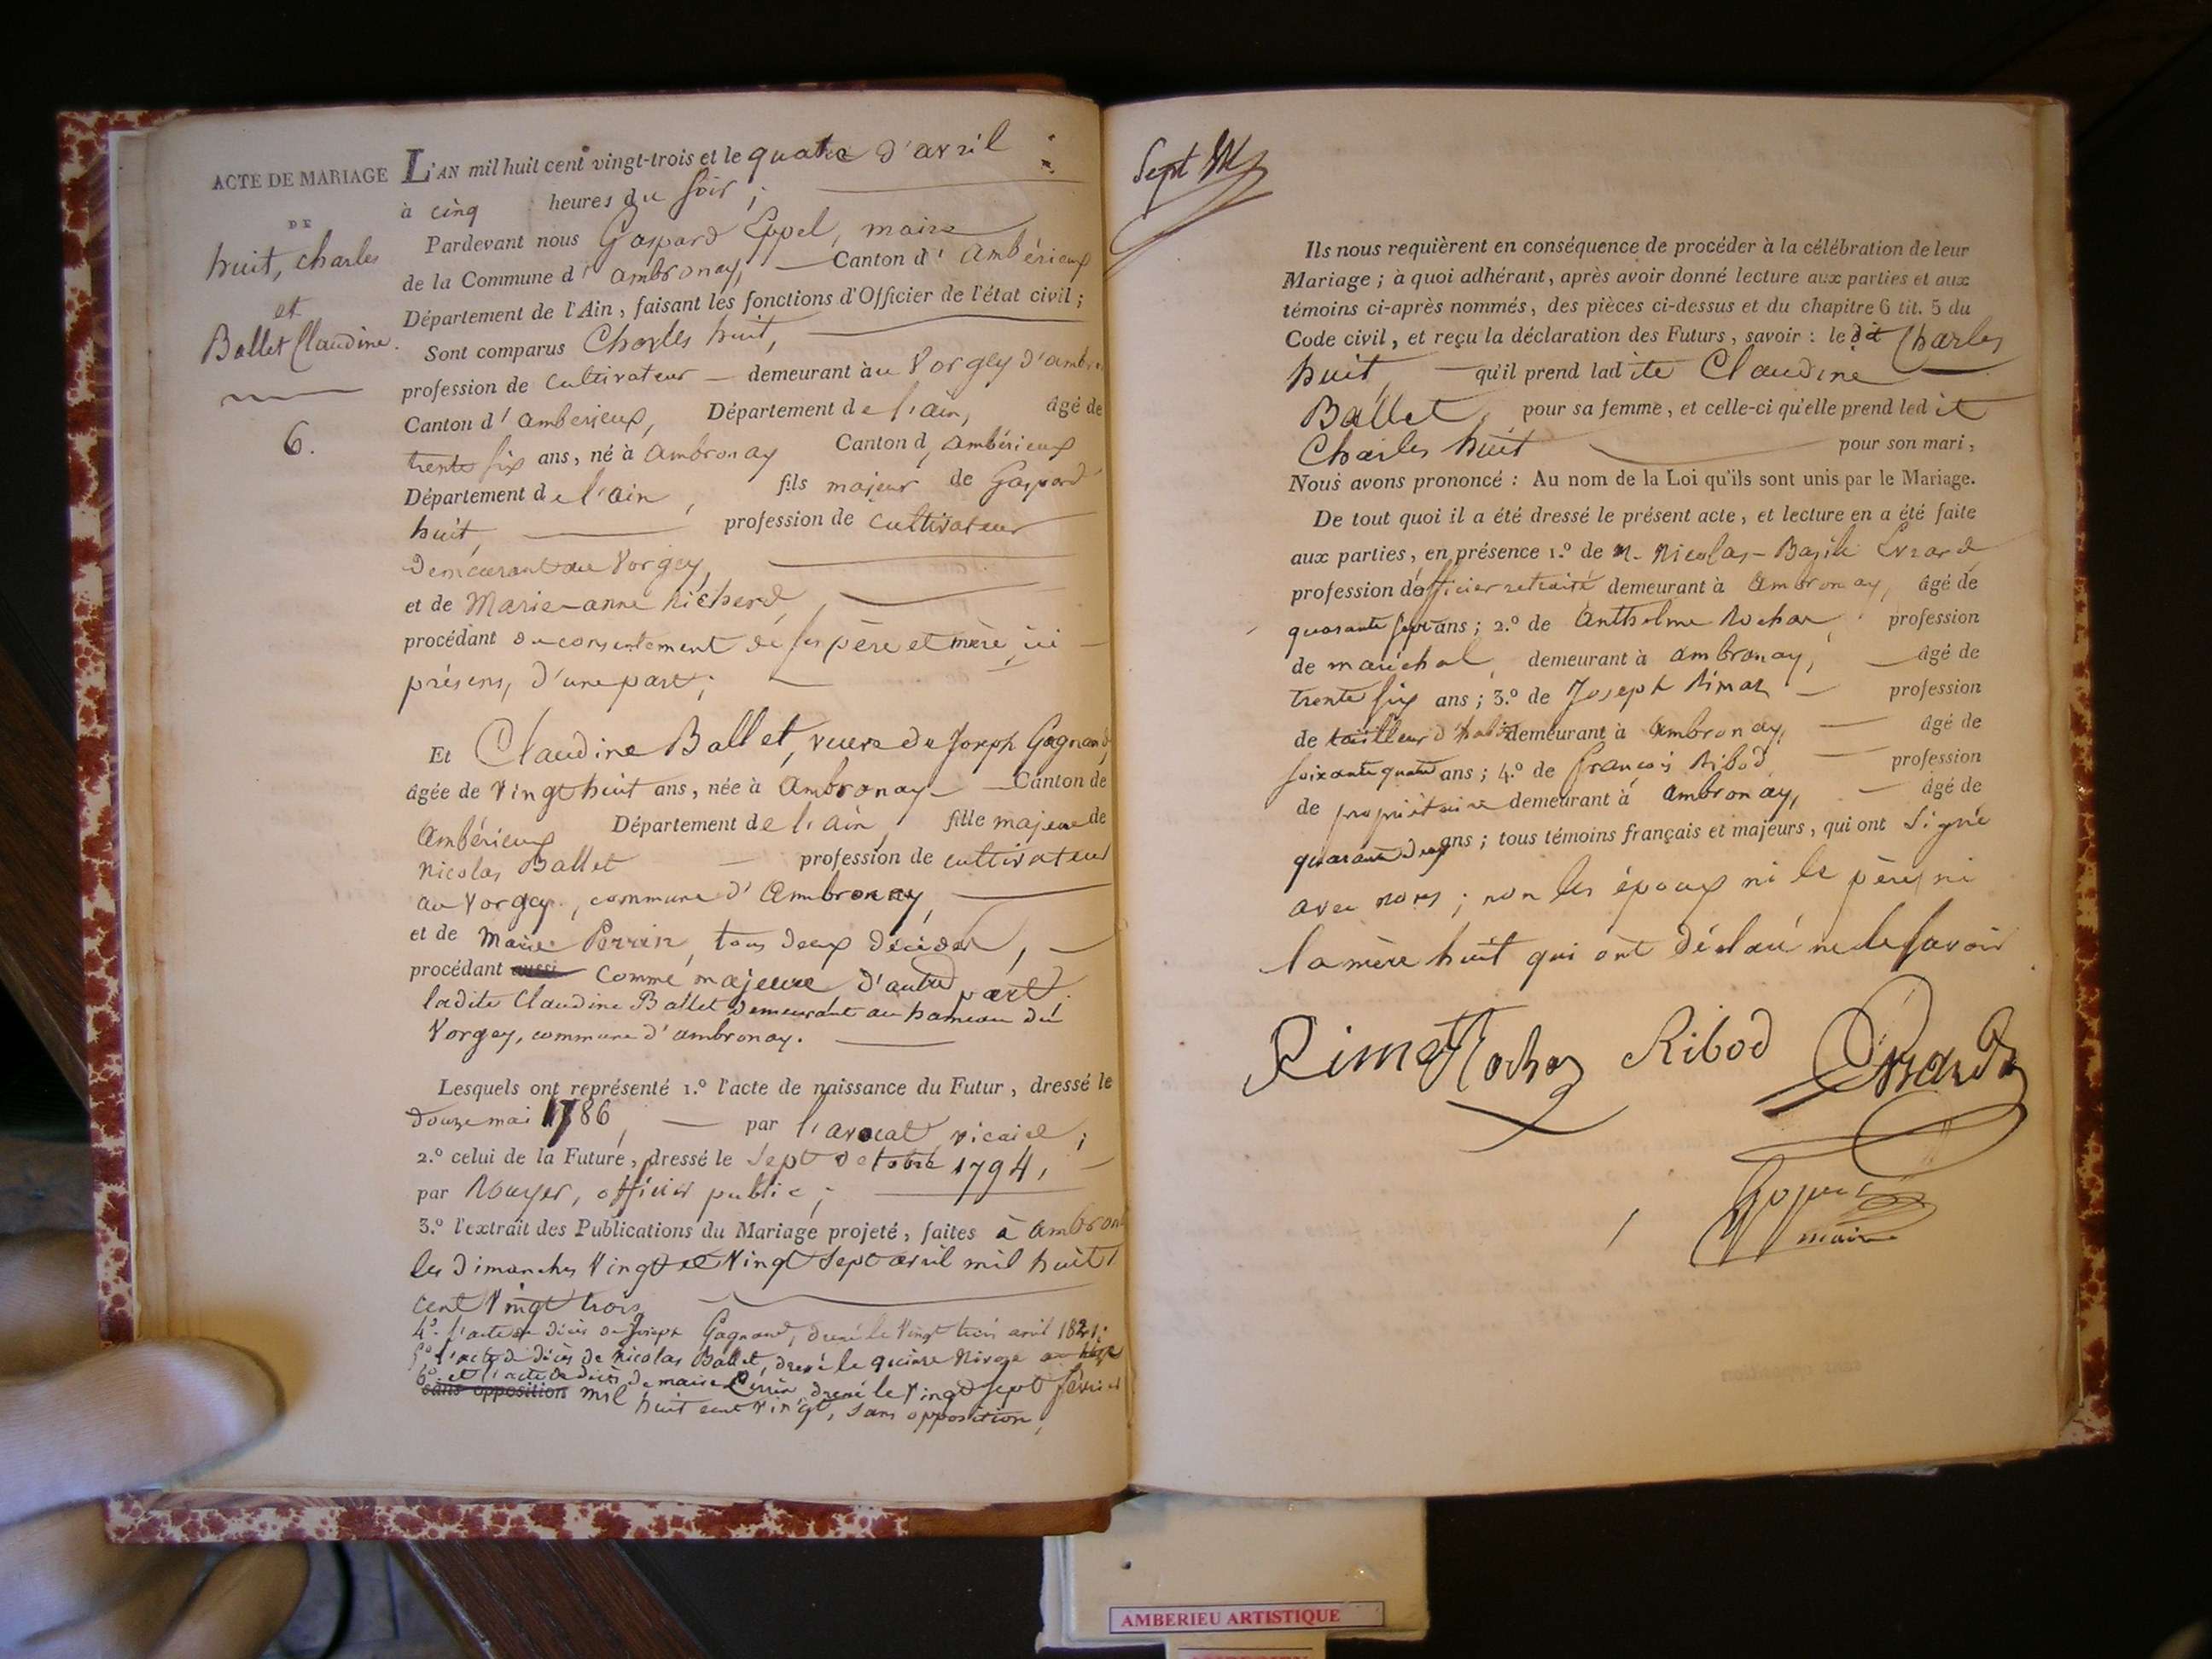 ACTE DE MARIAGE
DE
huit, charles
et
Ballet Claudine.
6.
L'AN mil huit cent vingt-trois et le quatre d'avril
à cinq heures du soir ;
Pardevant nous Gaspard Eppel, maire
de la Commune d'ambronay, Canton d'ambérieux
Département de l'Ain, faisant les fonctions d'Officier de l'état civil ;
Sont comparus Charles huit,
profession de cultivateur demeurant au Vorgey d'ambr
Canton d'amberieux, Département de l'ain, âgé de
trente six ans, né à ambronay Canton d, ambérieux
Département de l'ain, fils majeur de Gaspard
huit, profession de cultivateur
demeurant au Vorgey,
et de Marie-anne
procédant du consentement de ses père et mère, ici
présens, d'une part ;
Et Claudine Ballet, veuve de Joseph Gagnand,
âgée de vingt huit ans, née à ambronay Canton de
ambérieux Département de l'ain, fille majeure de
nicolas Ballet profession de cultivateur
au Vorgey, commune d'ambronay,
et de Marie Perrin, tous deux décédés,
procédant aussi comme majeure d'autre part.
ladite Claudine Ballet demeurant au hameau du
Vorgey, commune d'ambronay.
Lesquels ont représenté 1.º l'acte de naissance du Futur, dressé le
douze mai 1786, par l'avocat, vicaire ;
2.º celui de la Future, dressé le sept octobre 1794,
par Rouyer, officier public ;
3.º l'extrait des Publications du Mariage projeté, faites à ambron
les dimanches vingt et vingt sept avril mil huit
cent vingt trois
4.º l'acte de décès de Joseph Gagnand, dressé le vingt trois avril 1821 ;
5.º l'acte de décès de nicolas Ballet, dressé le quinze nivose
6.º et l'acte de décès de marie Perrin, dressé le vingt sept février
sans opposition mil huit cent vingt, sans opposition,
Sept
Ils nous requièrent en conséquence de procéder à la célébration de leur
Mariage ; à quoi adhérant, après avoir donné lecture aux parties et aux
témoins ci-après nommés, des pièces ci-dessus et du chapitre 6 tit. 5 du
Code civil, et reçu la déclaration des Futurs, savoir : le dit Charles
huit, qu'il prend ladite Claudine
Ballet, pour sa femme, et celle-ci qu'elle prend ledit
Charles huit pour son mari,
Nous avons prononcé : Au nom de la Loi qu'ils sont unis par le Mariage.
De tout quoi il a été dressé le présent acte, et lecture en a été faite
aux parties, en présence 1.º de M. Nicolas-Bazile Evrard
profession d'officier retraité demeurant à ambronay, âgé de
quarante sept ans ; 2.º de anthelme Rochas profession
de maréchal, demeurant à ambronay, âgé de
trente six ans ; 3.º de Joseph Rimaz profession
de tailleur d'habits demeurant à ambronay, âgé de
soixante quatre ans ; 4.º de françois Ribod, profession
de propriétaire demeurant à ambronay, âgé de
quarante deux ans ; tous témoins français et majeurs, qui ont signé
avec nous ; non les époux ni le père, ni
la mère huit qui ont déclaré ne le savoir
Rimaz Rochas Ribod Evrard
maire
AMBERIEU ARTISTIQUE